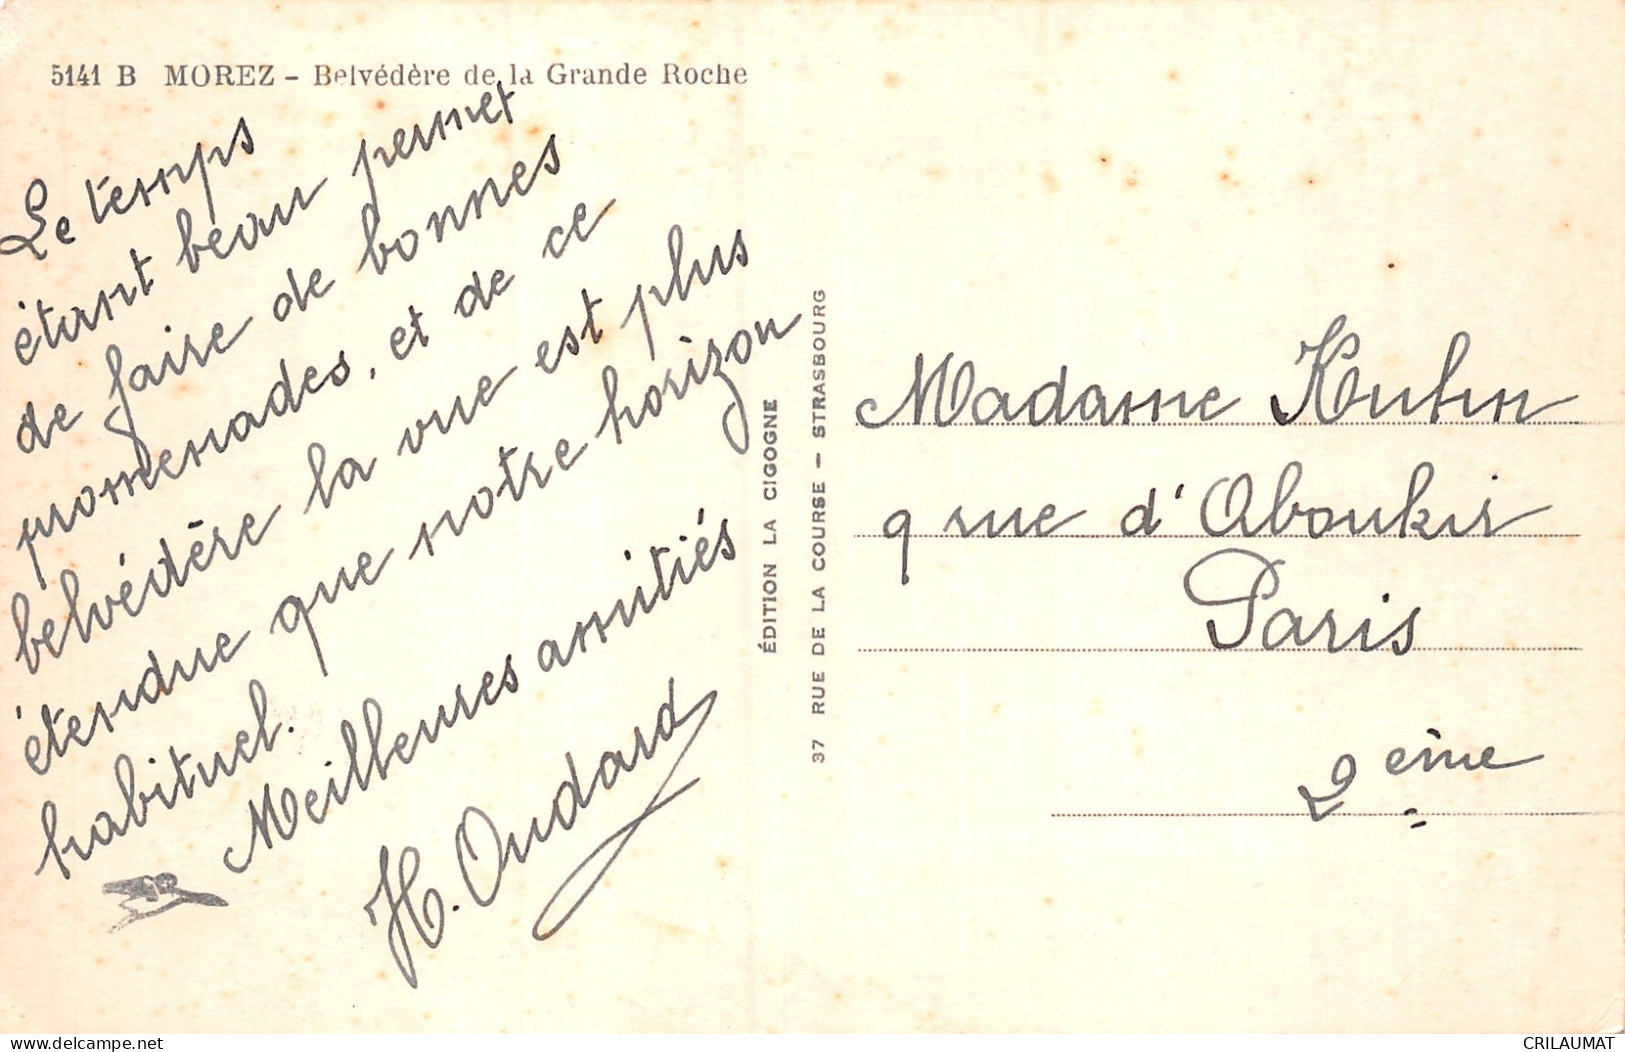 5141 B MOREZ - Belvédère de la Grande Roche
Le temps
étant beau permet
de faire de bonnes
promenades, et de ce
belvédère la vue est plus
étendue que notre horizon
habituel.
Meilleures amitiés
H. Oudard
ÉDITION LA CIGOGNE
37 RUE DE LA COURSE - STRASBOURG
Madame Kuhn
9 rue d'Aboukir
Paris
2ème
delcampe.net
CRILAUMAT